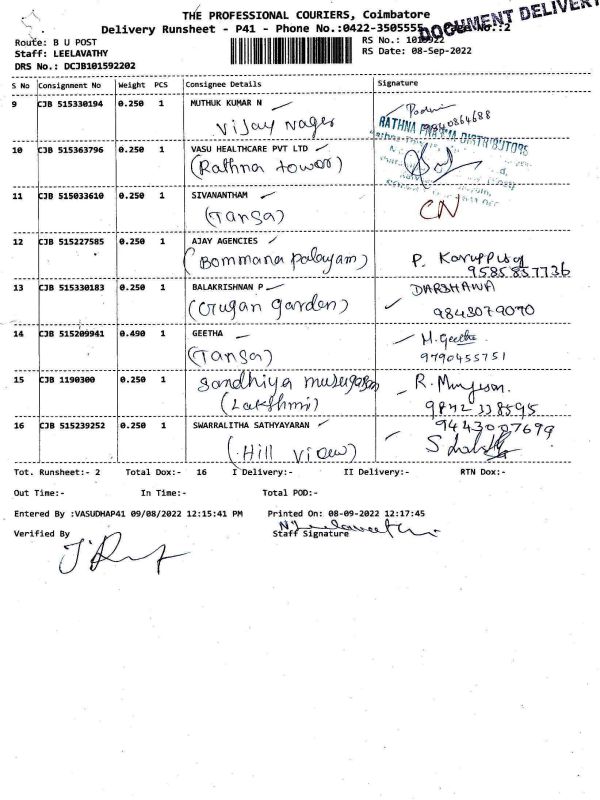 THE PROFESSIONAL COURIERS, Coimbatore
DOCUMENT DELIVERY
Delivery Runsheet - P41 - Phone No.:0422-3505555 No.:2
Route: B U POST
RS No.:
Staff: LEELAVATHY
RS Date: 08-Sep-2022
DRS No.: DCJB101592202
S No Consignment No Weight PCS Consignee Details Signature
9 CJB 515330194 0.250 1 MUTHUK KUMAR N
Vijay Nager
RATHNA DISTRIBUTORS
10 CJB 515363796 0.250 1 VASU HEALTHCARE PVT LTD
(Rathna tower)
11 CJB 515033610 0.250 1 SIVANANTHAM
(Tansa) CN
12 CJB 515227585 0.250 1 AJAY AGENCIES
(Bommana palayam) P.
9585857736
13 CJB 515330183 0.250 1 BALAKRISHNAN P DARSHANA
(Gugan garden) 9843079070
14 CJB 515209941 0.490 1 GEETHA M. Geetha
(Tansa) 9790455751
15 CJB 1190300 0.250 1 Sandhiya murugasan R.
(Lakshmi) 9842338595
16 CJB 515239252 0.250 1 SWARRALITHA SATHYAYARAN 9443007699
(Hill view)
Tot. Runsheet:- 2 Total Dox:- 16 I Delivery:- II Delivery:- RTN Dox:-
Out Time:- In Time:- Total POD:-
Entered By :VASUDHAP41 09/08/2022 12:15:41 PM Printed On: 08-09-2022 12:17:45
Verified By Staff Signature